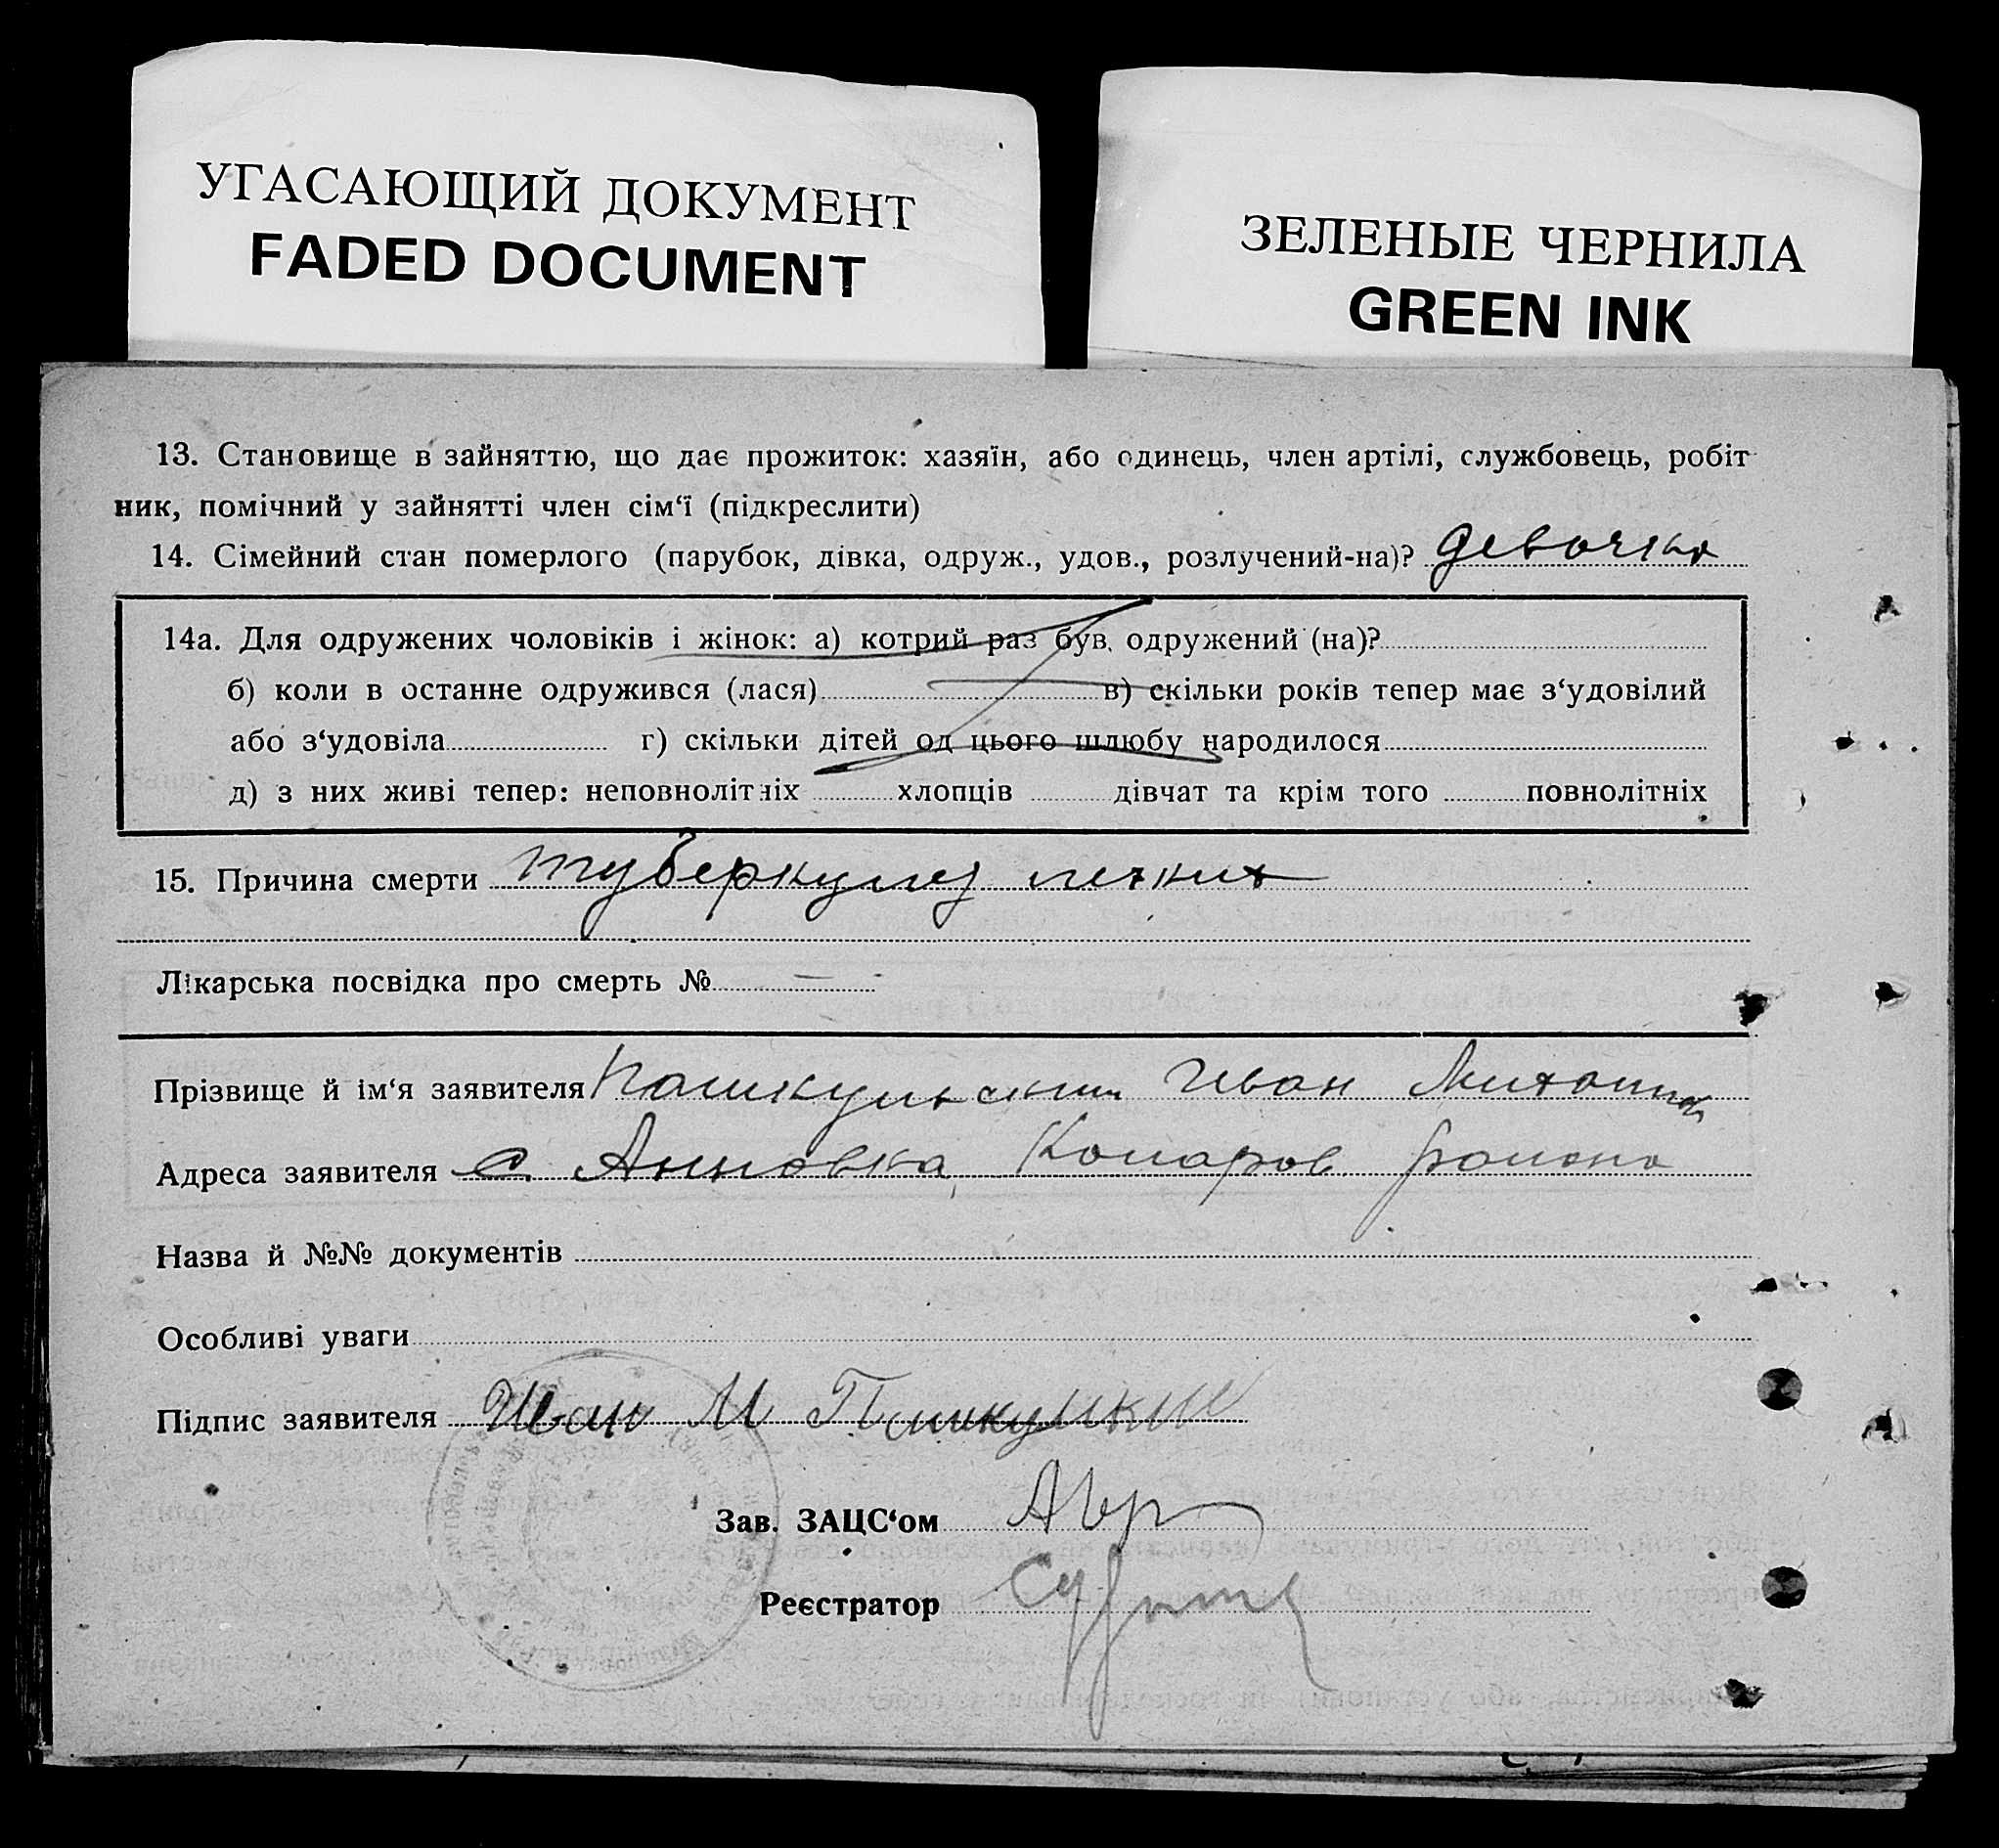 УГАСАЮЩИЙ ДОКУМЕНТ
FADED DOCUMENT
ЗЕЛЕНЫЕ ЧЕРНИЛА
GREEN INK
13. Становище в зайняттю, що дає прожиток: хазяїн, або одинець, член артілі, службовець, робіт
ник, помічний у зайнятті член сім‘ї (підкреслити)
14. Сімейний стан померлого (парубок, дівка, одруж., удов., розлучений-на)? девочка
14а. Для одружених чоловіків і жінок: а) котрий раз був одружений (на)?
б) коли в останнє одружився (лася) в) скільки років тепер має з‘удовілий
або з‘удовіла г) скільки дітей од цього шлюбу народилося
д) з них живі тепер: неповнолітніх хлопців дівчат та крім того повнолітніх
15. Причина смерти туберкулез легких
Лікарська посвідка про смерть № —
Прізвище й ім‘я заявителя Иван
Адреса заявителя с. Анновка, Комаров района
Назва й №№ документів
Особливі уваги
Підпис заявителя Иван М
Зав. ЗАЦС‘ом
Реєстратор